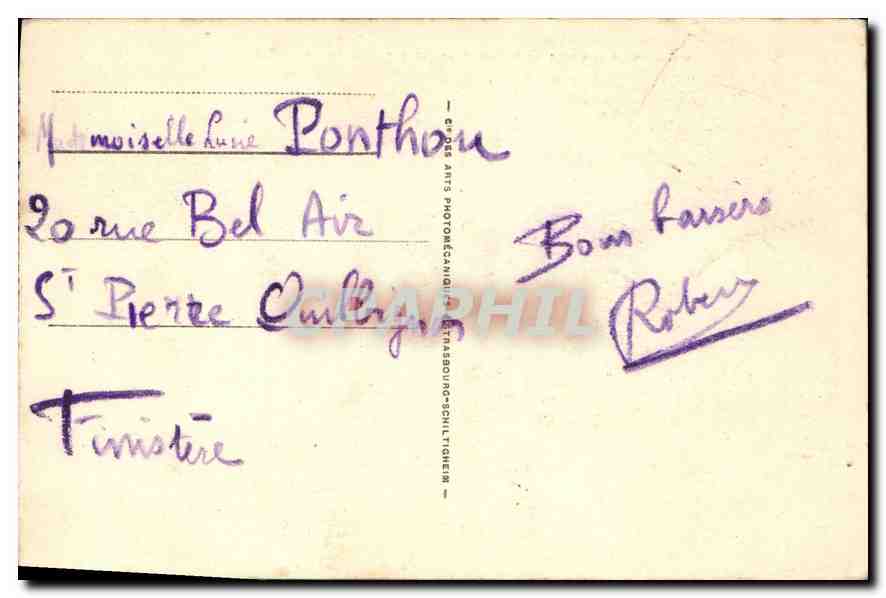 Mademoiselle Lucie Ponthou
20 rue Bel Air
St Pierre Quilbignon
Finistère
— Cie DES ARTS PHOTOMÉCANIQUES STRASBOURG-SCHILTIGHEIM —
Bons baisers
Robert
CARTAPHIL